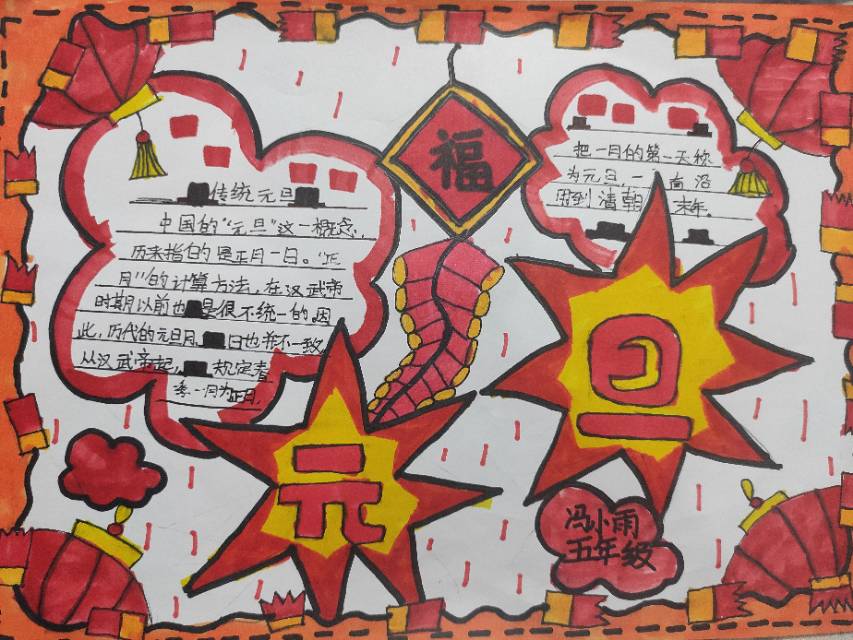 传统元旦
中国的“元旦”这一概念，
历来指的是正月一日。“正
月”的计算方法，在汉武帝
时期以前也是很不统一的。因
此，历代的元旦月日也并不一致。
从汉武帝起，规定春
季一月为正月，
福
把一月的第一天称
为元旦，一直沿
用到清朝末年。
元
旦
冯小雨
五年级